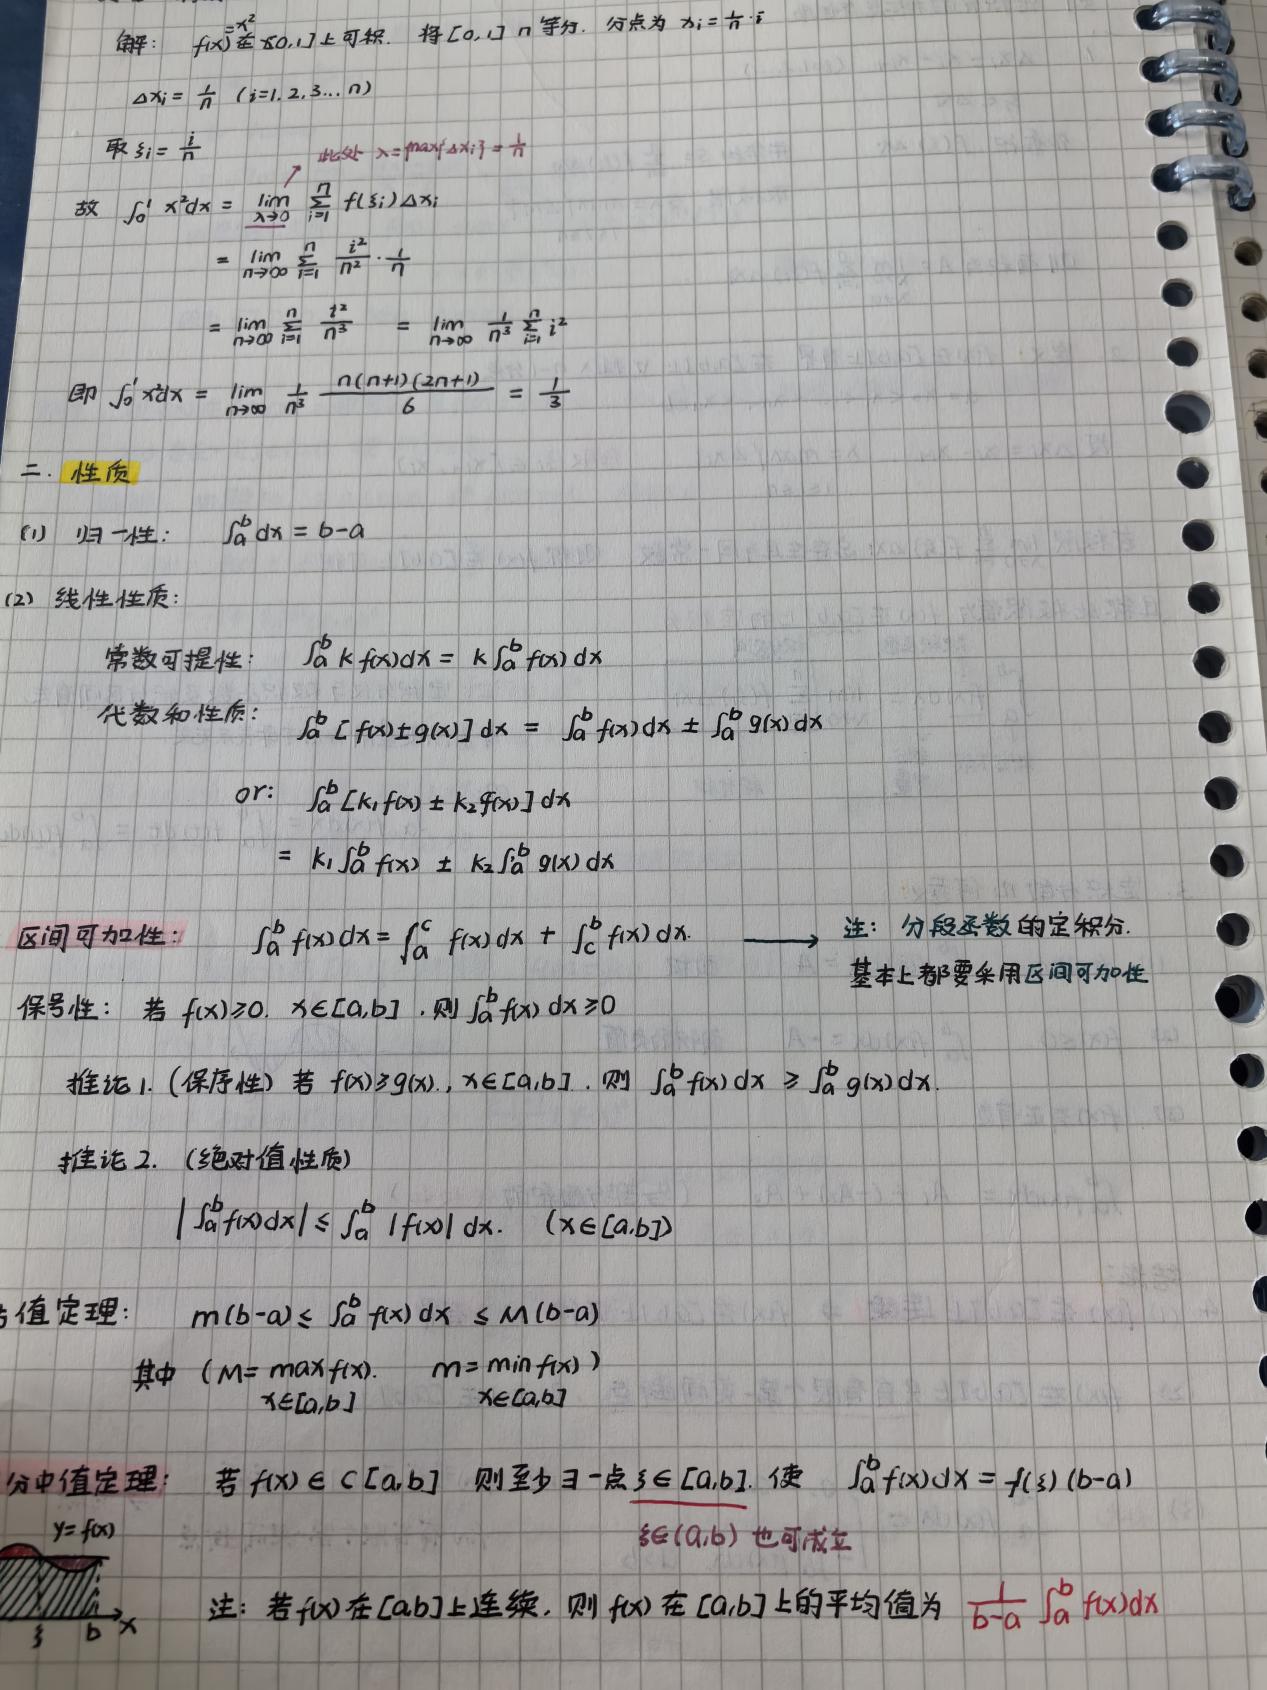 解: f(x)=x² 在[0,1]上可积. 将[0,1] n等分. 分点为 xᵢ=1/n·i
Δxᵢ= 1/n (i=1,2,3...n)
取 ξᵢ= i/n
此处 λ=max{Δxᵢ}=1/n
故 ∫₀¹ x²dx = lim_{λ→0} Σ_{i=1}^{n} f(ξᵢ)Δxᵢ
= lim_{n→∞} Σ_{i=1}^{n} i²/n² · 1/n
= lim_{n→∞} Σ_{i=1}^{n} i²/n³ = lim_{n→∞} 1/n³ Σ_{i=1}^{n} i²
即 ∫₀¹x²dx = lim_{n→∞} 1/n³ n(n+1)(2n+1)/6 = 1/3
二. 性质
(1) 归一性: ∫ₐᵇ dx = b-a
(2) 线性性质:
常数可提性: ∫ₐᵇ k f(x)dx = k∫ₐᵇ f(x) dx
代数和性质: ∫ₐᵇ [f(x)±g(x)] dx = ∫ₐᵇ f(x)dx ± ∫ₐᵇ g(x)dx
or: ∫ₐᵇ [k₁f(x) ± k₂g(x)] dx
= k₁∫ₐᵇ f(x) ± k₂∫ₐᵇ g(x) dx
区间可加性: ∫ₐᵇ f(x)dx = ∫ₐᶜ f(x)dx + ∫_c^b f(x)dx. → 注: 分段函数的定积分.
基本上都要采用区间可加性
保号性: 若 f(x)≥0. x∈[a,b] , 则∫ₐᵇ f(x) dx≥0
推论1. (保序性) 若 f(x)≥g(x)., x∈[a,b] . 则 ∫ₐᵇ f(x)dx ≥ ∫ₐᵇ g(x)dx.
推论2. (绝对值性质)
|∫ₐᵇ f(x)dx| ≤ ∫ₐᵇ |f(x)| dx. (x∈[a,b])
值定理: m(b-a)≤ ∫ₐᵇ f(x)dx ≤M(b-a)
其中 (M= max f(x). m= min f(x))
x∈[a,b] x∈[a,b]
分中值定理: 若 f(x)∈C[a,b] 则至少∃一点ξ∈[a,b]. 使 ∫ₐᵇ f(x)dx = f(ξ)(b-a)
y=f(x)
ξ∈(a,b) 也可成立
注: 若f(x)在[a,b]上连续, 则 f(x)在[a,b]上的平均值为 1/(b-a) ∫ₐᵇ f(x)dx
ξ b x